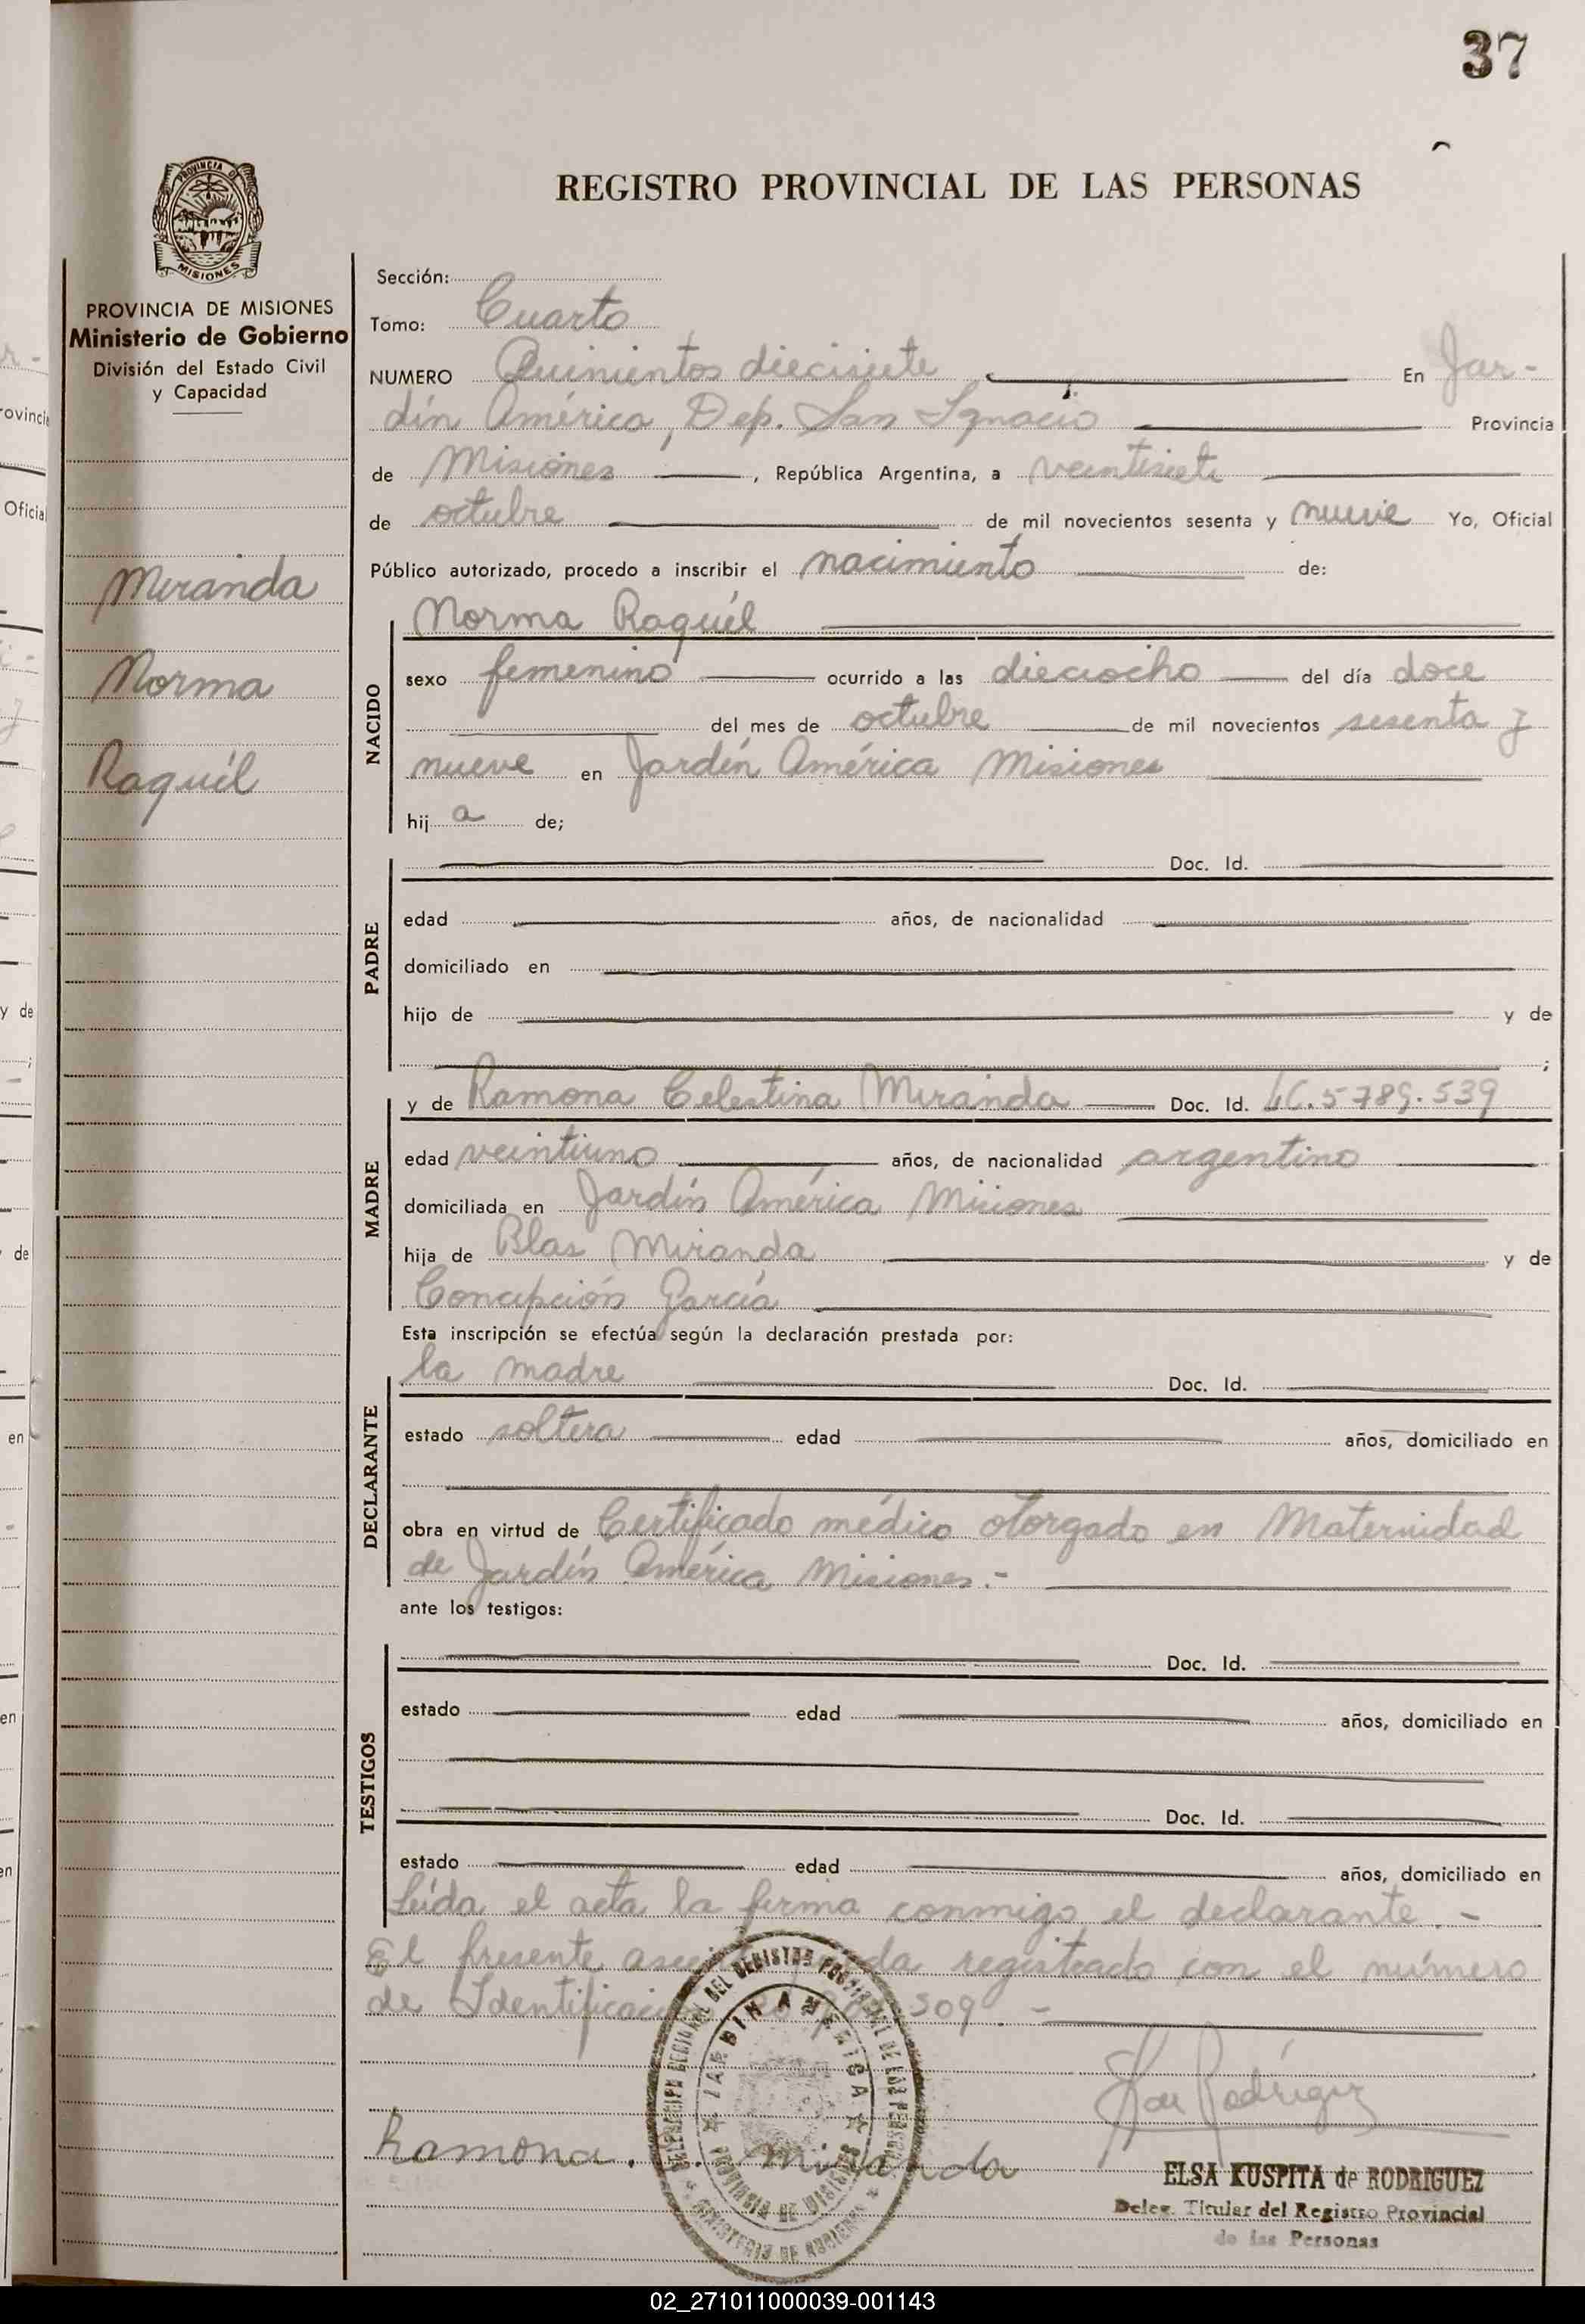 37
REGISTRO PROVINCIAL DE LAS PERSONAS
PROVINCIA DE MISIONES
Ministerio de Gobierno
División del Estado Civil
y Capacidad
Miranda
Norma
Raquél
Sección:
Tomo: Cuarto
NUMERO Quinientos diecisiete En Jar-
dín América, Dep. San Ignacio Provincia
de Misiones, República Argentina, a veintisiete
de octubre de mil novecientos sesenta y nueve Yo, Oficial
Público autorizado, procedo a inscribir el nacimiento de:
Norma Raquél
NACIDO
sexo femenino ocurrido a las dieciocho del día doce
del mes de octubre de mil novecientos sesenta y
nueve en Jardín América Misiones
hija de;
PADRE
Doc. Id.
edad años, de nacionalidad
domiciliado en
hijo de y de
;
MADRE
y de Ramona Celestina Miranda Doc. Id. LC.5789.539
edad veintiuno años, de nacionalidad argentino
domiciliada en Jardín América Misiones
hija de Blas Miranda y de
Concepción García
Esta inscripción se efectúa según la declaración prestada por:
DECLARANTE
la madre Doc. Id.
estado soltera edad años, domiciliado en
obra en virtud de Certificado médico otorgado en Maternidad
de Jardín América Misiones.-
ante los testigos:
TESTIGOS
Doc. Id.
estado edad años, domiciliado en
Doc. Id.
estado edad años, domiciliado en
Leída el acta la firma conmigo el declarante.-
El presente registrado con el número
de 509.-
JARDIN AMERICA
PROVINCIA DE MISIONES
Ramona. Miranda
ELSA KUSPITA de RODRIGUEZ
Deleg. Titular del Registro Provincial
de las Personas
02_271011000039-001143